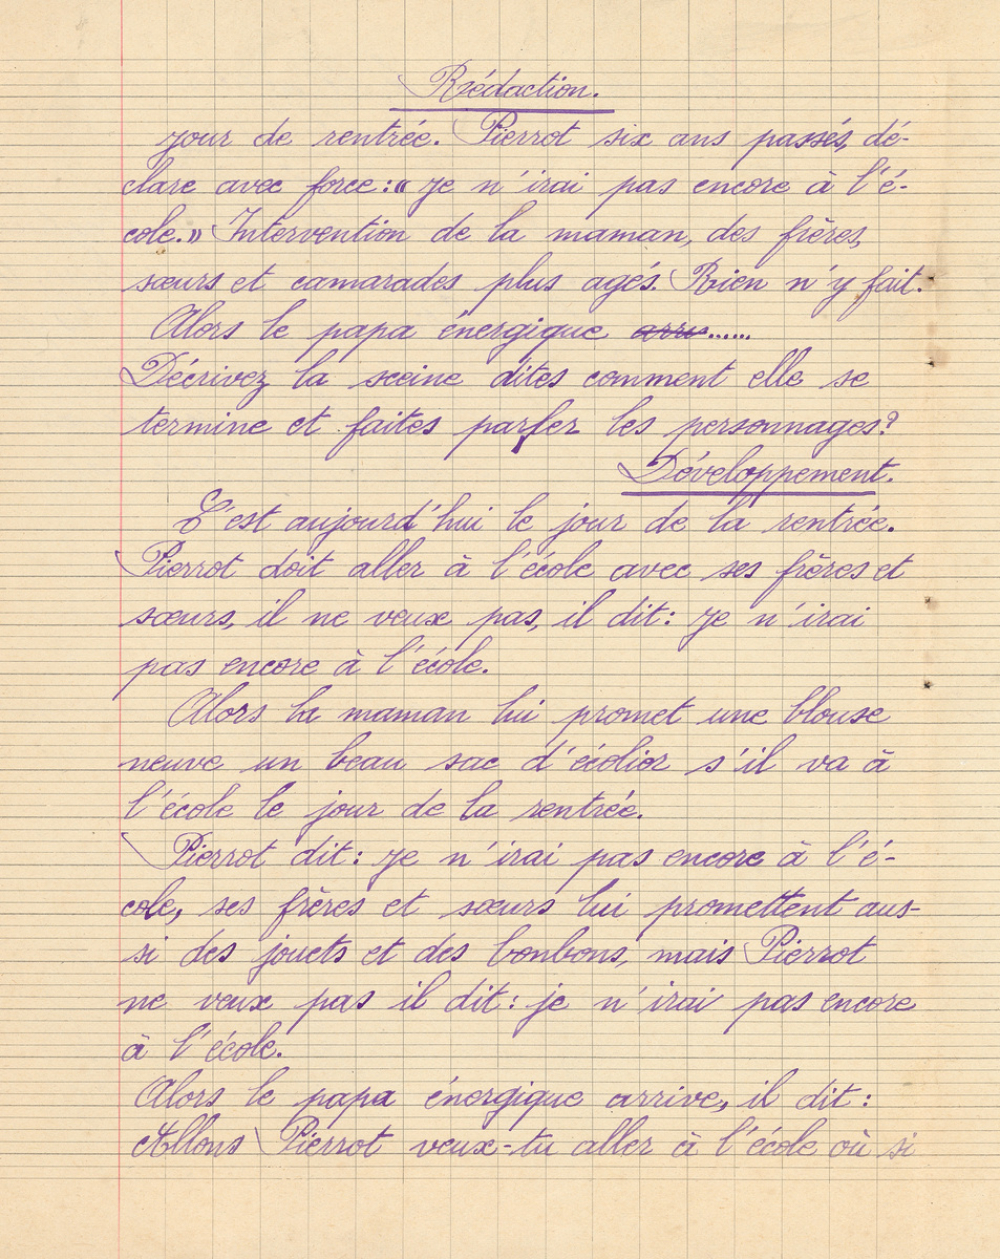 Rédaction.
jour de rentrée. Pierrot six ans passés, dé-
clare avec force: « Je n'irai pas encore à l'é-
cole. » Intervention de la maman, des frères,
sœurs et camarades plus agés. Rien n'y fait.
Alors le papa énergique arriv......
Décrivez la sceine dites comment elle se
termine et faites parler les personnages?
Développement.
C'est aujourd'hui le jour de la rentrée.
Pierrot doit aller à l'école avec ses frères et
sœurs, il ne veux pas, il dit: Je n'irai
pas encore à l'école.
Alors la maman lui promet une blouse
neuve un beau sac d'écolier s'il va à
l'école le jour de la rentrée.
Pierrot dit: Je n'irai pas encore à l'é-
cole, ses frères et sœurs lui promettent aus-
si des jouets et des bonbons, mais Pierrot
ne veux pas il dit: je n'irai pas encore
à l'école.
Alors le papa énergique arrive, il dit:
Allons Pierrot veux-tu aller à l'école où si